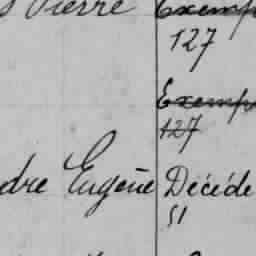 Pierre Exemp
127
Exemp
127
dre Eugène Décéde
51